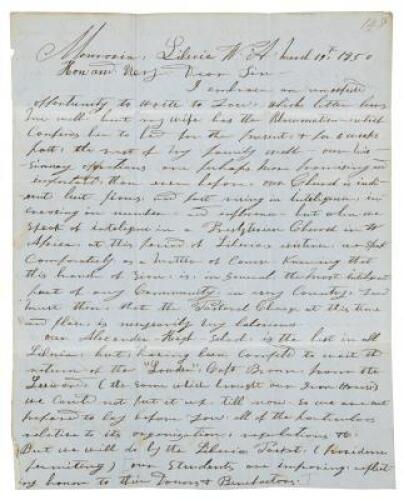 148
Monrovia, Liberia W. A. March 19th 1850
Hon and Very Dear Sir
I embrace an
opportunity to write to you: which letter leaves
me well but my wife has the Rheumatism which
Confines her to bed for the present & for weeks
past: the rest of my family well - our Mis-
sionary operations are perhaps more promising and
important than ever before. our Church is indi-
gent but firm: and fast rising in Inteligence, in-
creasing in number - and influence - but when we
speak of inteligence in a Presbyterian Church in W
Africa: at this period of Liberias existence: we speak
Comparatively as a matter of Course Knowing that
this branch of Zion: is: in General the most
part of any Community in every Country: you
must then: that the Pastoral Charge at this time
and place is necessarily very laborious
our Alexander High School is the best in all
Liberia: but: having been compeled to wait the
return of the "Louder" Capt Brown from the
Leeward: (the same which brought our Iron House)
we Could not put it up till now: So we are not
prepared to lay before you: all of the particulars
relative to its organization: regulations &c.
But we will do by the Liberia Packet: (Providence
permiting) our Students are improving: reflect-
ing honor to their Donors & Benefactors